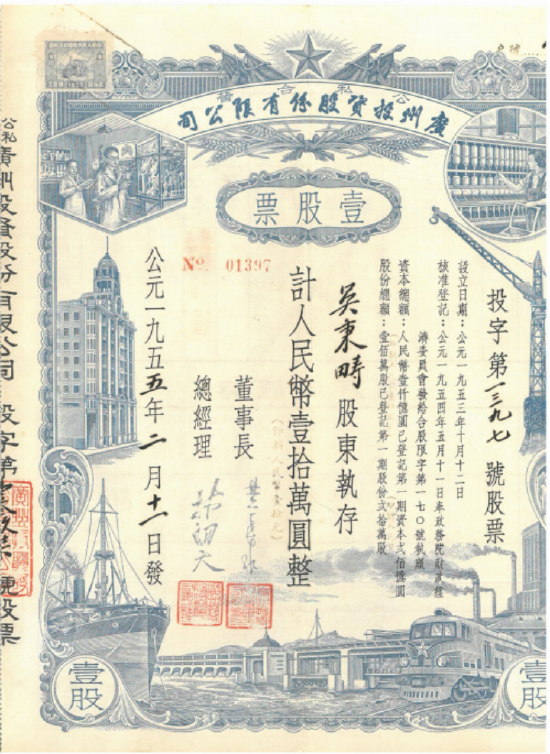 公私合營
廣州投資股份有限公司
壹股票
№ 01397
投字第一三九七號股票
設立日期：公元一九五三年十月十二日
核准登記：公元一九五四年五月十一日奉政務院財政經
濟委員會發給合股限字第一七〇號執照
資本總額：人民幣壹仟億圓已登記第一期資本弍佰億圓
股份總額：壹佰萬股已登記第一期股份弍拾萬股
吳東疇股東執存
計人民幣壹拾萬圓整
董事長
總經理
公元一九五五年二月十一日發
壹股
壹股
公私
廣州投資股份有限公司
投字第
號股票